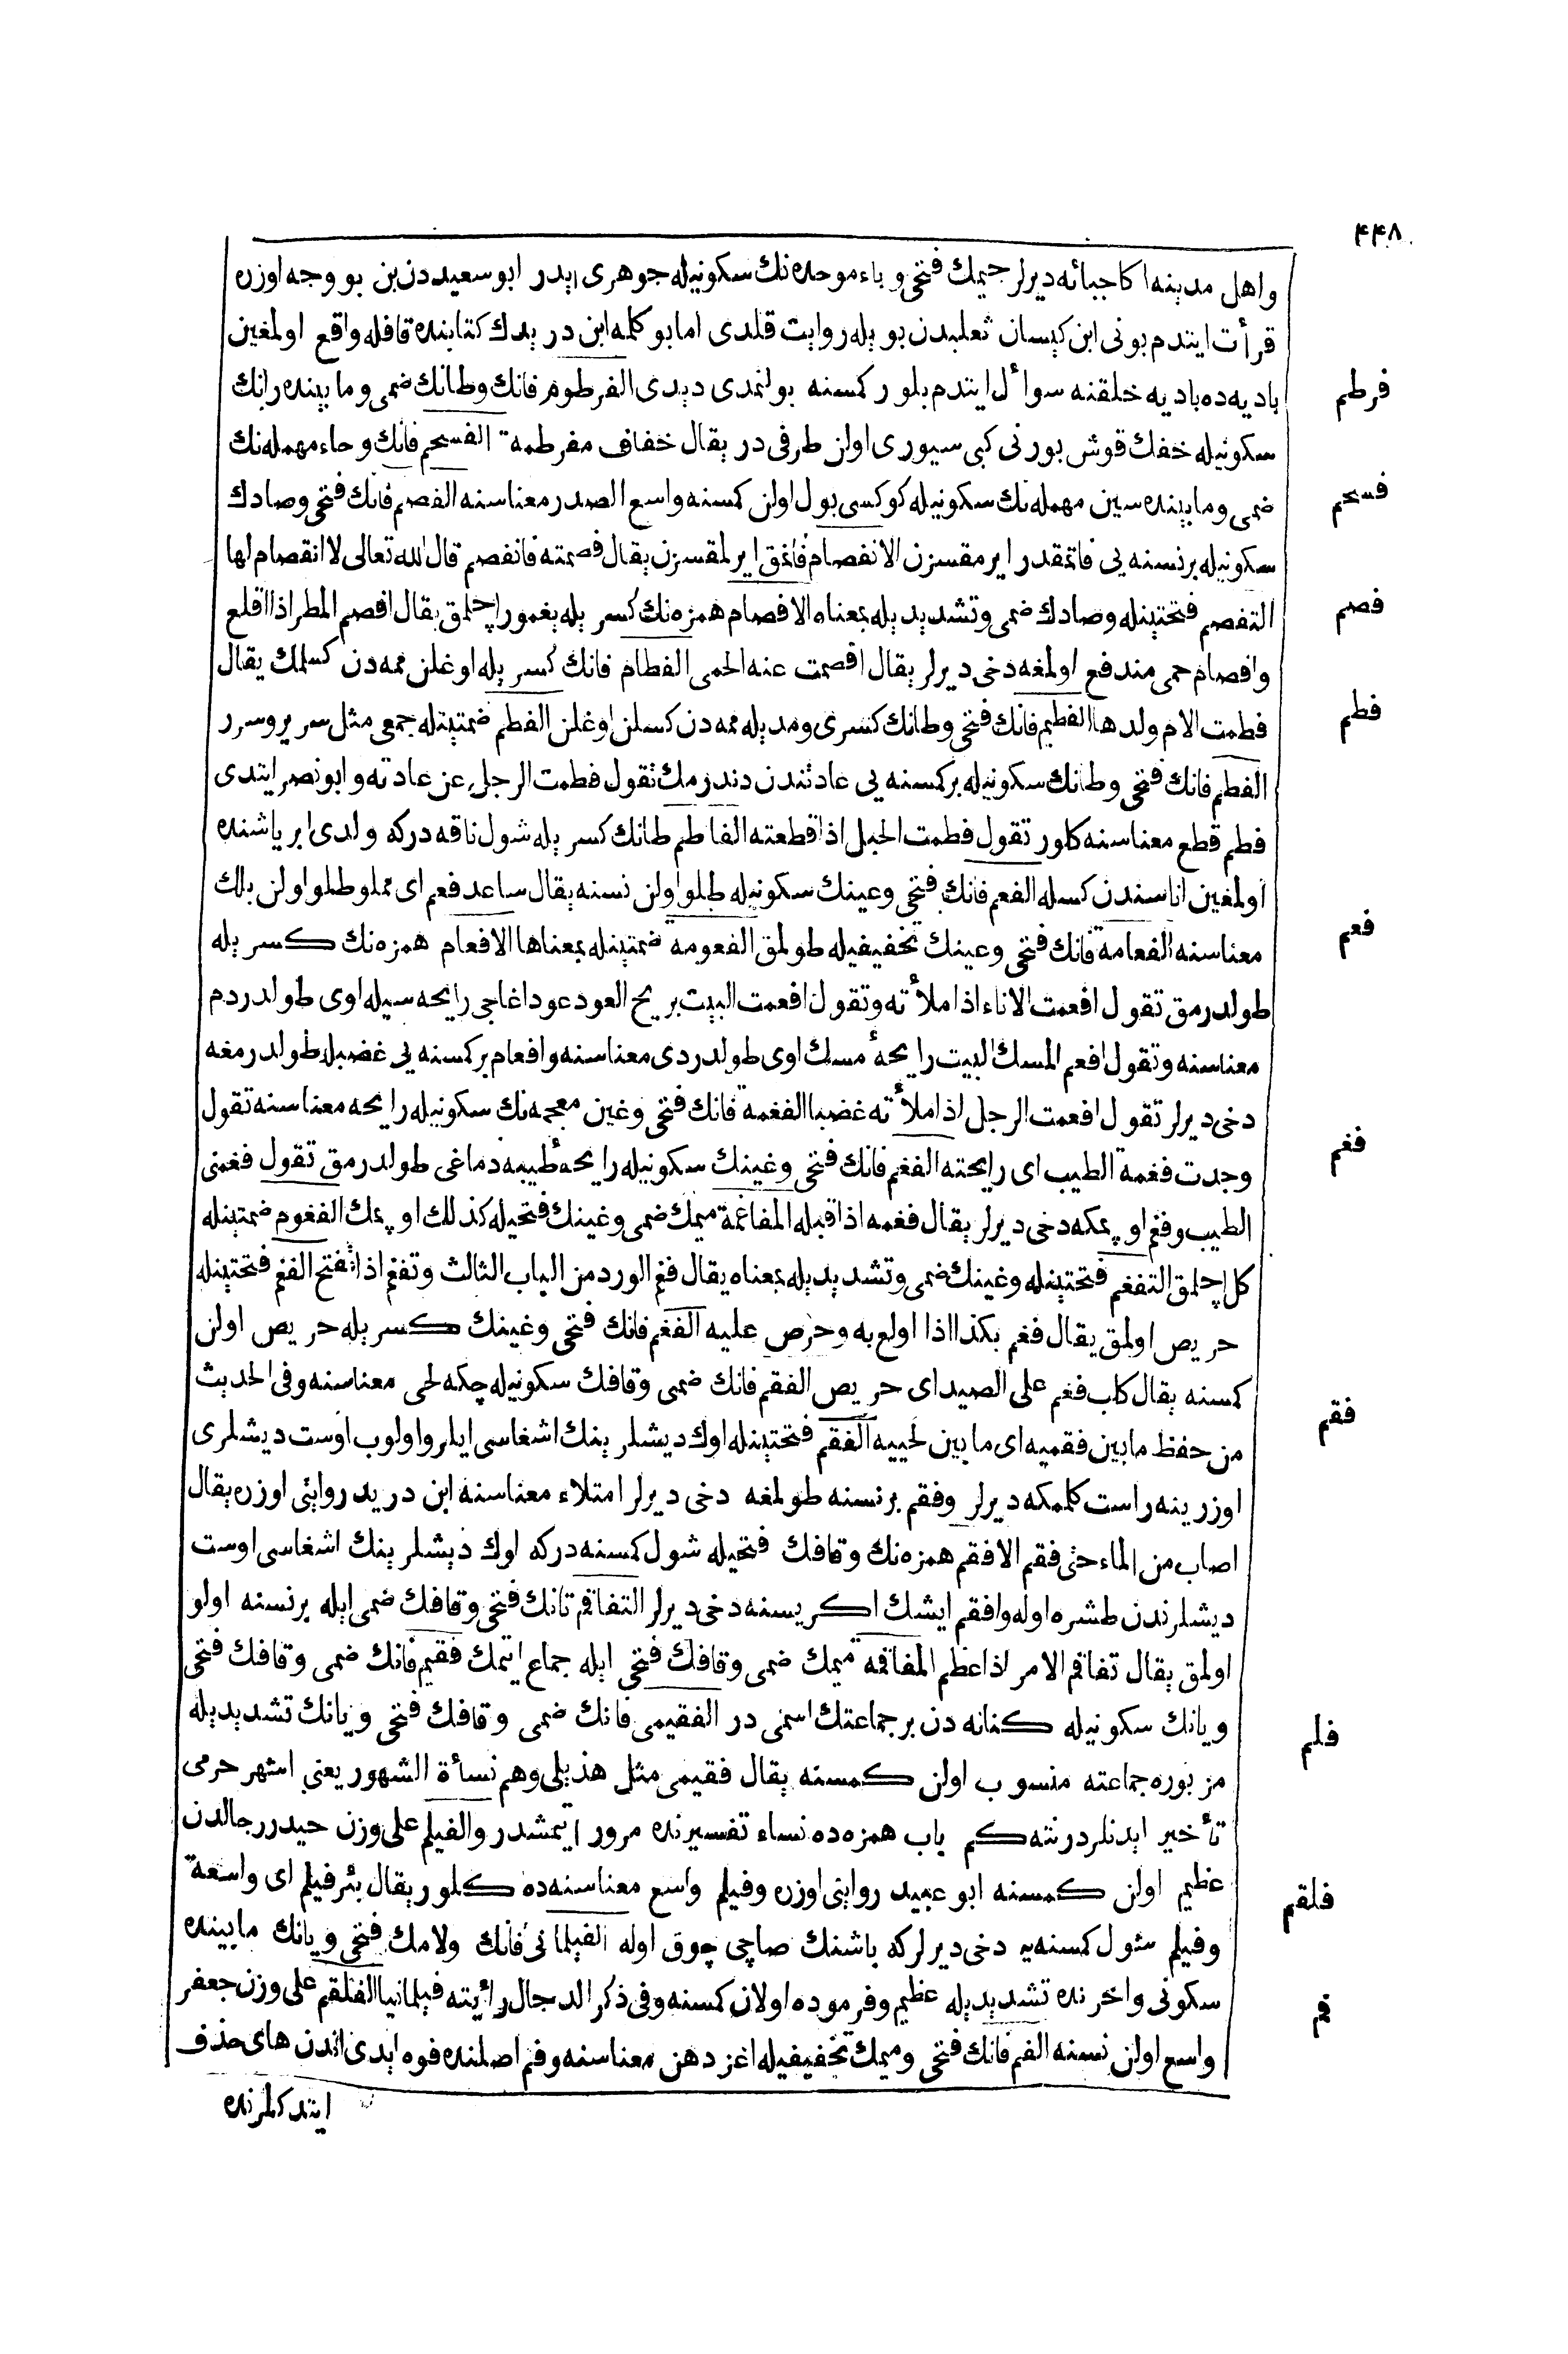 ۴۴۸
واهل مدينه اكا جبائه ديرلر جيمك فتحى وباء موحده نك سكونيله جوهرى ايدر ابو سعيددن بن بو وجه اوزره
قرأت ايتدم بونى ابن كيسان ثعلبدن بويله روايت قلدى اما بو كلمه ابن دريدك كتابنده قافله واقع اولمغين
باديه ده باديه خلقنه سوأل ايتدم بلور كمسنه بولنمدى ديدى الفرطوم فانك وطانك ضمى وما بينده رانك
فرطم
سكونيله خفك قوش بورنى كبى سيورى اولن طرفى در يقال خفاف مفرطمة الفسحم فانك وحاء مهمله نك
ضمى وما بينده سين مهمله نك سكونيله كوكسى بول اولن كمسنه واسع الصدر معناسنه الفصم فانك فتحى وصادك
فسحم
سكونيله بر نسنه يى قاتمقدر ايرمقسزن الانفصام قانمق ايرلمقسزن يقال فصمته فانفصم قال الله تعالى لا انفصام لها
التفصم فتحتينله وصادك ضمى وتشديديله بمعناه الافصام همزه نك كسريله يغمور اچلمق يقال افصم المطر اذا اقلع
فصم
وافصام حمى مندفع اولمغه دخى ديرلر يقال افصمت عنه الحمى الفطام فانك كسريله اوغلن ممه دن كسلمك يقال
فطمت الام ولدها الفطيم فانك فتحى وطانك كسرى ومديله ممه دن كسلن اوغلن الفطم ضمتينله جمعى مثل سرير وسرر
فطم
الفطم فانك فتحى وطانك سكونيله بر كمسنه يى عادتندن دندرمك تقول فطمت الرجل عن عادته وابو نصر ايتدى
فطم قطع معناسنه كلور تقول فطمت الحبل اذا قطعته الفاطم طانك كسريله شول ناقه دركه ولدى بر ياشنده
اولمغين اناسندن كسله الفعم فانك فتحى وعينك سكونيله طلو اولن نسنه يقال ساعد فعم اى مملو طلو اولن بلك
معناسنه الفعامة فانك فتحى وعينك تخفيفيله طولمق الفعومه ضمتينله بمعناها الافعام همزه نك كسريله
فعم
طولدرمق تقول افعمت الاناء اذا ملأته وتقول افعمت البيت بريح العود عود اغاجى رايحه سيله اوى طولدردم
معناسنه وتقول افعم المسك البيت رايحهٔ مسك اوى طولدردى معناسنه وافعام بر كمسنه يى غضبله طولدرمغه
دخى ديرلر تقول افعمت الرجل اذا ملأته غضبا الفغمة فانك فتحى وغين معجمه نك سكونيله رايحه معناسنه تقول
وجدت فغمة الطيب اى رايحته الفغم فانك فتحى وغينك سكونيله رايحهٔ طيبه دماغى طولدرمق تقول فغمنى
فغم
الطيب وفغم اوپمكه دخى ديرلر يقال فغمه اذا قبله المفاغمة ميمك ضمى وغينك فتحيله كذلك اوپمك الفغوم ضمتينله
كل اچلمق التفغم فتحتينله وغينك ضمى وتشديديله بمعناه يقال فغم الورد من الباب الثالث وتفغم اذا انفتح الفغم فتحتينله
حريص اولمق يقال فغم بكذا اذا اولع به وحرص عليه الفغم فانك فتحى وغينك كسريله حريص اولن
كمسنه يقال كلب فغم على الصيد اى حريص الفقم فانك ضمى وقافك سكونيله چكه لحى معناسنه وفى الحديث
من حفظ ما بين فقميه اى ما بين لحييه الفقم فتحتينله اوك ديشلرينك اشغاسى ايلرو اولوب اوست ديشلرى
فقم
اوزرينه راست كلمكه ديرلر وفقم بر نسنه طولمغه دخى ديرلر امتلاء معناسنه ابن دريد روايتى اوزره يقال
اصاب من الماء حتى فقم الافقم همزه نك وقافك فتحيله شول كمسنه دركه اوك ديشلرينك اشغاسى اوست
ديشلرندن طشره اوله وافقم ايشك اكريسنه دخى ديرلر التفاقم تانك فتحى وقافك ضمى ايله بر نسنه اولو
اولمق يقال تفاقم الامر اذا عظم المفاقمه ميمك ضمى وقافك فتحى ايله جماع ايتمك فقيم فانك ضمى وقافك فتحى
ويانك سكونيله كنانه دن بر جماعتك اسمى در الفقيمى فانك ضمى وقافك فتحى ويانك تشديديله
فلم
مزبوره جماعته منسوب اولن كمسنه يقال فقيمى مثل هذيلى وهم نسأة الشهور يعنى اشهر حرمى
تأخير ايدنلردر نته كم باب همزه ده نساء تفسيرنده مرور ايتمشدر والفيلم على وزن حيدر رجالدن
عظيم اولن كمسنه ابو عبيد روايتى اوزره وفيلم واسع معناسنه ده كلور يقال بئر فيلم اى واسعة
فلقم
وفيلم شول كمسنه يه دخى ديرلر كه باشنك صاچى چوق اوله الفيلمانى فانك ولامك فتحى ويانك مابينده
سكونى واخرنده تشديديله عظيم وفرموده اولان كمسنه وفى ذكر الدجال رأيته فيلمانيا الفلقم على وزن جعفر
واسع اولن نسنه الفم فانك فتحى وميمك تخفيفيله اغز دهن معناسنه وفم اصلنده فوه ايدى اندن هاى حذف
فم
ايتدكلرنده